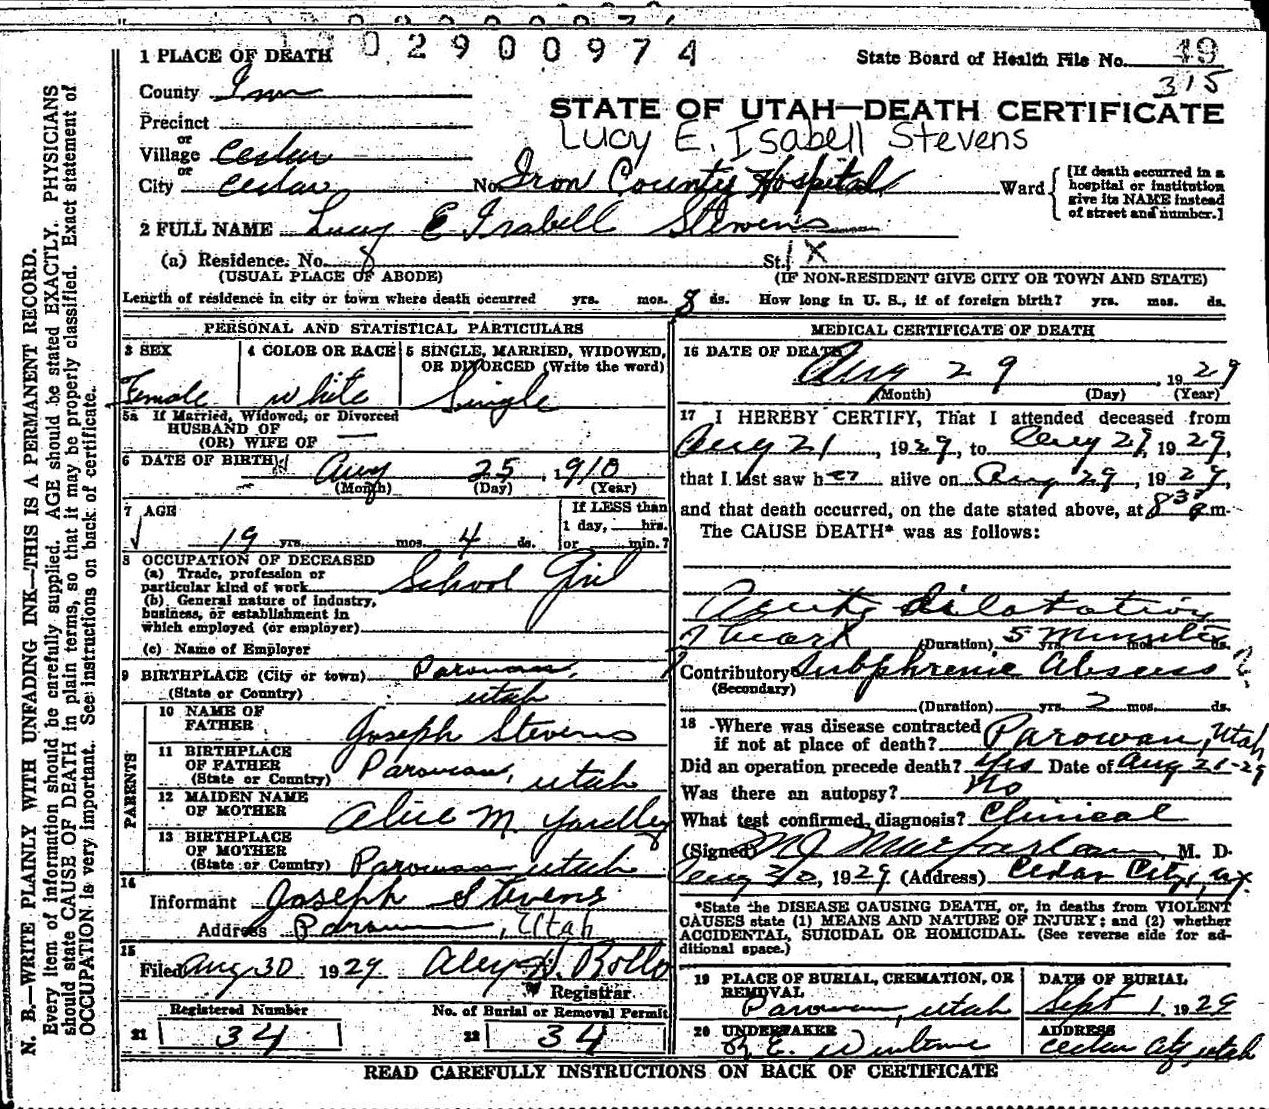 N. B.—WRITE PLAINLY WITH UNFADING INK—THIS IS A PERMANENT RECORD.
Every item of information should be carefully supplied. AGE should be stated EXACTLY. PHYSICIANS
should state CAUSE OF DEATH in plain terms, so that it may be properly classified. Exact statement of
OCCUPATION is very important. See instructions on back of certificate.
02900974
1 PLACE OF DEATH
State Board of Health File No. 49
315
County Iron
STATE OF UTAH—DEATH CERTIFICATE
Precinct
Lucy E. Isabell Stevens
or
Village Cedar
or
City Cedar No. Iron County Hospital Ward
[If death occurred in a
hospital or institution
give its NAME instead
of street and number.]
2 FULL NAME Lucy E Isabell Stevens
(a) Residence. No. St. X
(USUAL PLACE OF ABODE) (IF NON-RESIDENT GIVE CITY OR TOWN AND STATE)
Length of residence in city or town where death occurred yrs. mos. 8 ds. How long in U. S., if of foreign birth? yrs. mos. ds.
PERSONAL AND STATISTICAL PARTICULARS
3 SEX
Female
4 COLOR OR RACE
White
5 SINGLE, MARRIED, WIDOWED,
OR DIVORCED (Write the word)
Single
5a If Married, Widowed, or Divorced
HUSBAND OF
(OR) WIFE OF —
6 DATE OF BIRTH Aug 25 1910
(Month) (Day) (Year)
7 AGE
19 yrs. mos. 4 ds.
If LESS than
1 day, hrs.
or min.?
8 OCCUPATION OF DECEASED
(a) Trade, profession or
particular kind of work School Girl
(b) General nature of industry,
business, or establishment in
which employed (or employer)
(c) Name of Employer
9 BIRTHPLACE (City or town) Parowan,
(State or Country) Utah
PARENTS
10 NAME OF
FATHER Joseph Stevens
11 BIRTHPLACE
OF FATHER
(State or Country) Parowan, Utah
12 MAIDEN NAME
OF MOTHER Alice M Yardley
13 BIRTHPLACE
OF MOTHER
(State or Country) Parowan Utah
14
Informant Joseph Stevens
Address Parowan, Utah
15
Filed Aug 30 1929 Alex H. Rollo
Registrar
Registered Number
21 34
No. of Burial or Removal Permit
22 34
MEDICAL CERTIFICATE OF DEATH
16 DATE OF DEATH
Aug 29, 1929
(Month) (Day) (Year)
17 I HEREBY CERTIFY, That I attended deceased from
Aug 21, 1929, to Aug 29, 1929,
that I last saw her alive on Aug 29, 1929,
and that death occurred, on the date stated above, at 8 30 Pm.
The CAUSE DEATH* was as follows:
Acute dilatation
of heart (Duration) 5 Minutes yrs. mos. ds.
Contributory Subphrenic Abscess
(Secondary)
(Duration) yrs. 2 mos. ds.
18 Where was disease contracted
if not at place of death? Parowan, Utah
Did an operation precede death? Yes Date of Aug 21-29
Was there an autopsy? No
What test confirmed diagnosis? Clinical
(Signed) M J Macfarlane M. D.
Aug 30, 1929 (Address) Cedar City, Ut.
*State the DISEASE CAUSING DEATH, or, in deaths from VIOLENT
CAUSES state (1) MEANS AND NATURE OF INJURY; and (2) whether
ACCIDENTAL, SUICIDAL OR HOMICIDAL. (See reverse side for ad-
ditional space.)
19 PLACE OF BURIAL, CREMATION, OR
REMOVAL
Parowan, Utah
DATE OF BURIAL
Sept 1, 1929
20 UNDERTAKER
ADDRESS
Cedar City, Utah
READ CAREFULLY INSTRUCTIONS ON BACK OF CERTIFICATE